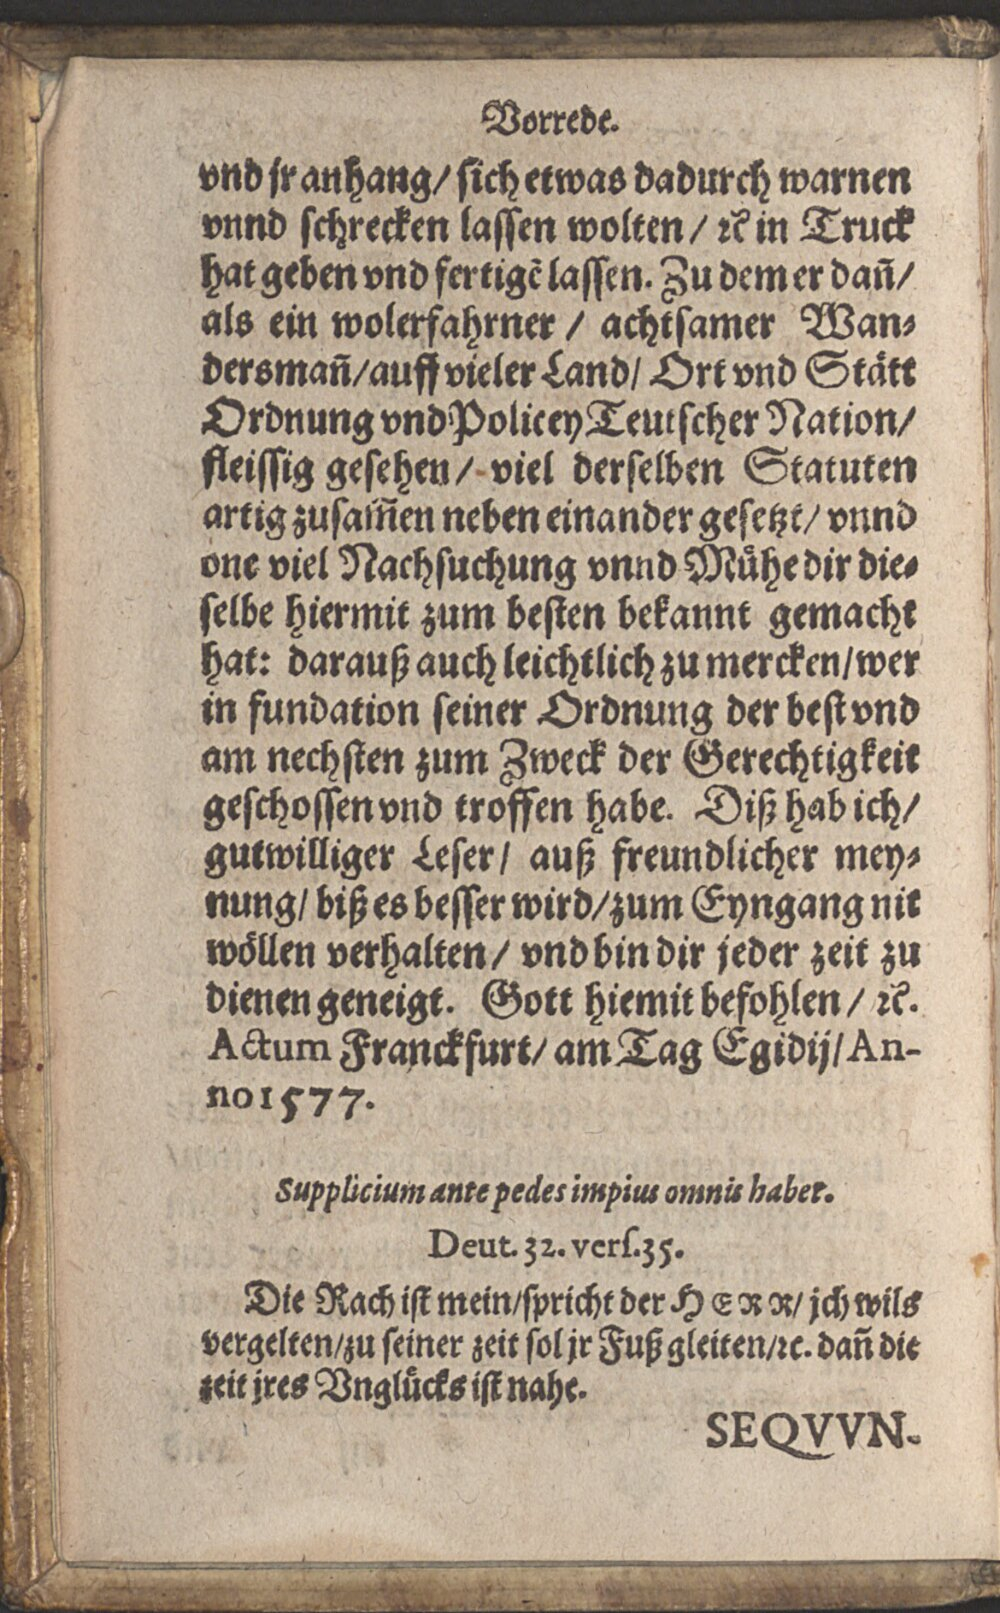 Vorrede.
vnd jr anhang/ sich etwas dadurch warnen
vnnd schrecken lassen wolten / ꝛc̃ in Truck
hat geben vnd fertigẽ lassen. Zu dem er dañ/
als ein wolerfahrner / achtsamer Wan⸗
dersmañ/auff vieler Land/ Ort vnd Stätt
Ordnung vnd Policey Teutscher Nation/
fleissig gesehen/ viel derselben Statuten
artig zusam̃en neben einander gesetzt/ vnnd
one viel Nachsuchung vnnd Mühe dir die⸗
selbe hiermit zum besten bekannt gemacht
hat: darauß auch leichtlich zu mercken/wer
in fundation seiner Ordnung der best vnd
am nechsten zum Zweck der Gerechtigkeit
geschossen vnd troffen habe. Diß hab ich/
gutwilliger Leser/ auß freundlicher mey⸗
nung/ biß es besser wird/zum Eyngang nit
wöllen verhalten/ vnd bin dir jeder zeit zu
dienen geneigt. Gott hiemit befohlen/ ꝛc̃.
Actum Franckfurt/ am Tag Egidij/An-
no 1577.
Supplicium ante pedes impius omnis habet.
Deut. 32. vers. 35.
Die Rach ist mein/spricht der HERR/ jch wils
vergelten/zu seiner zeit sol jr Fuß gleiten/ꝛc. dañ die
zeit jres Vnglücks ist nahe.
SEQVVN-